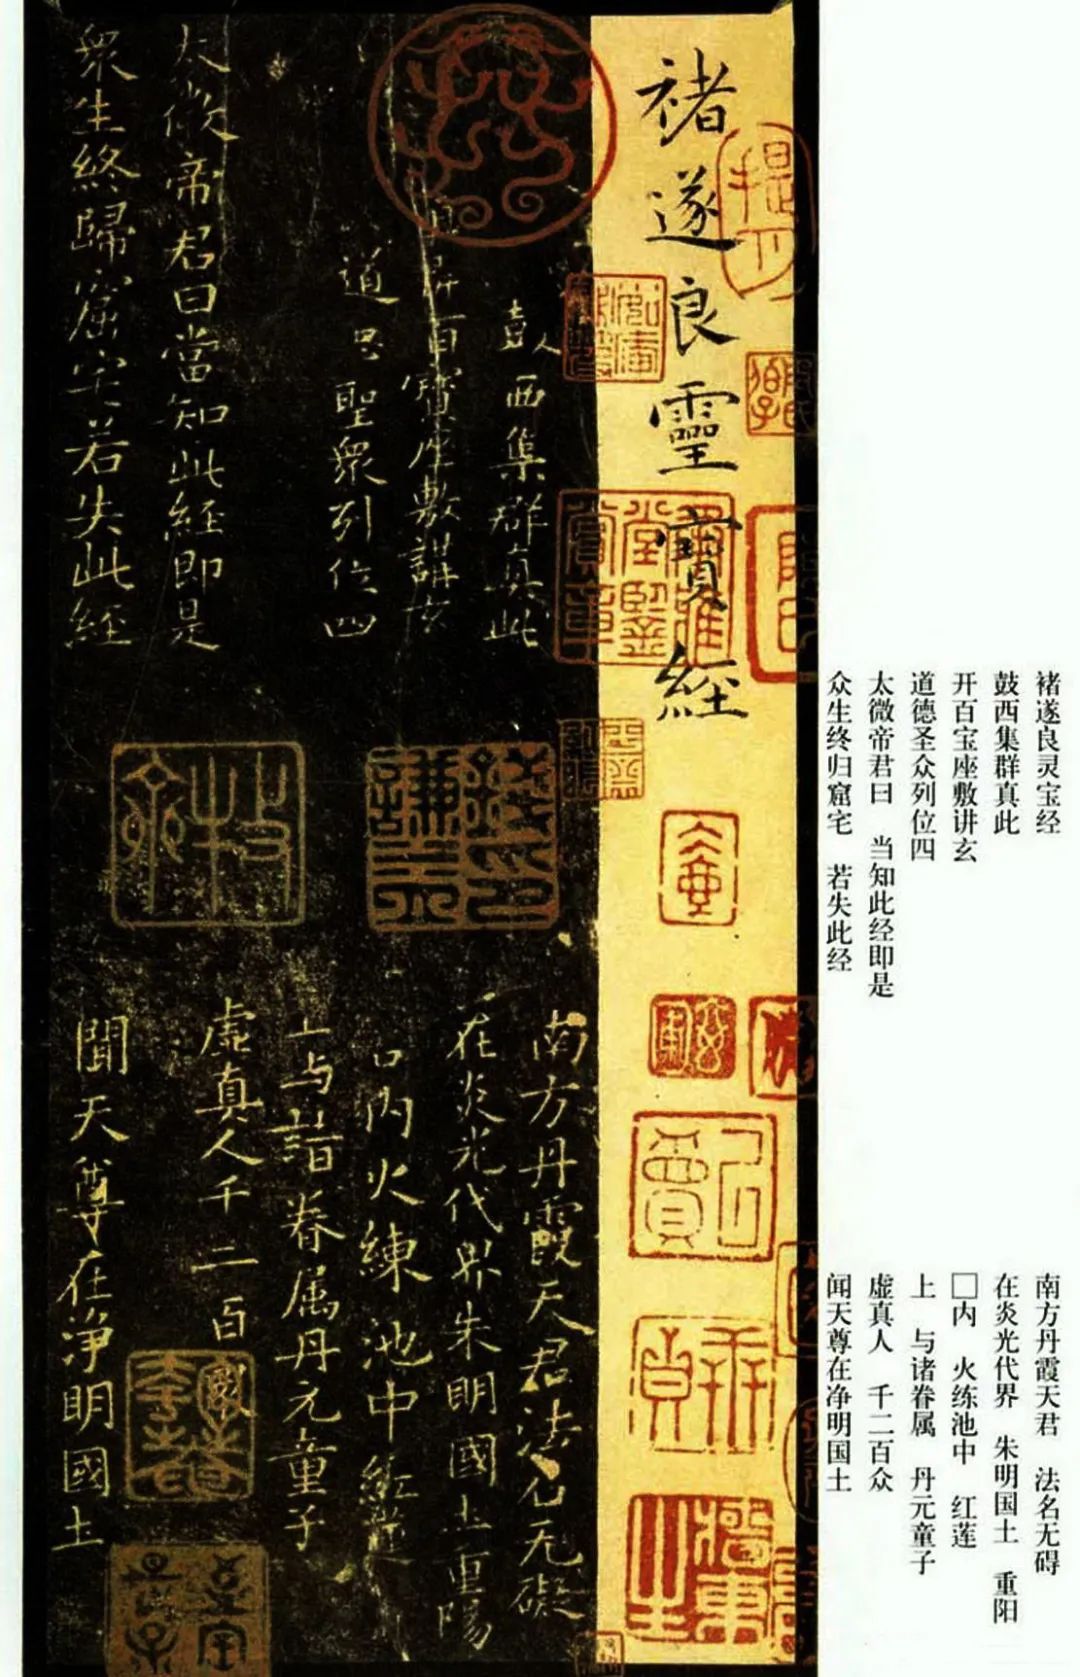 褚遂良靈寶經
鼓西集群真此
開百寶座敷講玄
道 聖眾列位四
太微帝君曰當知此経即是
衆生終歸窟宅若失此経
南方丹霞天君法名无礙
在炎光代界朱明國土重陽
内火練池中紅蓮
上与諸眷属丹元童子
虛真人千二百眾
聞天尊在淨明國土
褚遂良灵宝经
鼓西集群真此
开百宝座敷讲玄
道德圣众列位四
太微帝君曰 当知此经即是
众生终归窟宅 若失此经
南方丹霞天君 法名无碍
在炎光代界 朱明国土 重阳
□内 火练池中 红莲
上 与诸眷属 丹元童子
虚真人 千二百众
闻天尊在净明国土